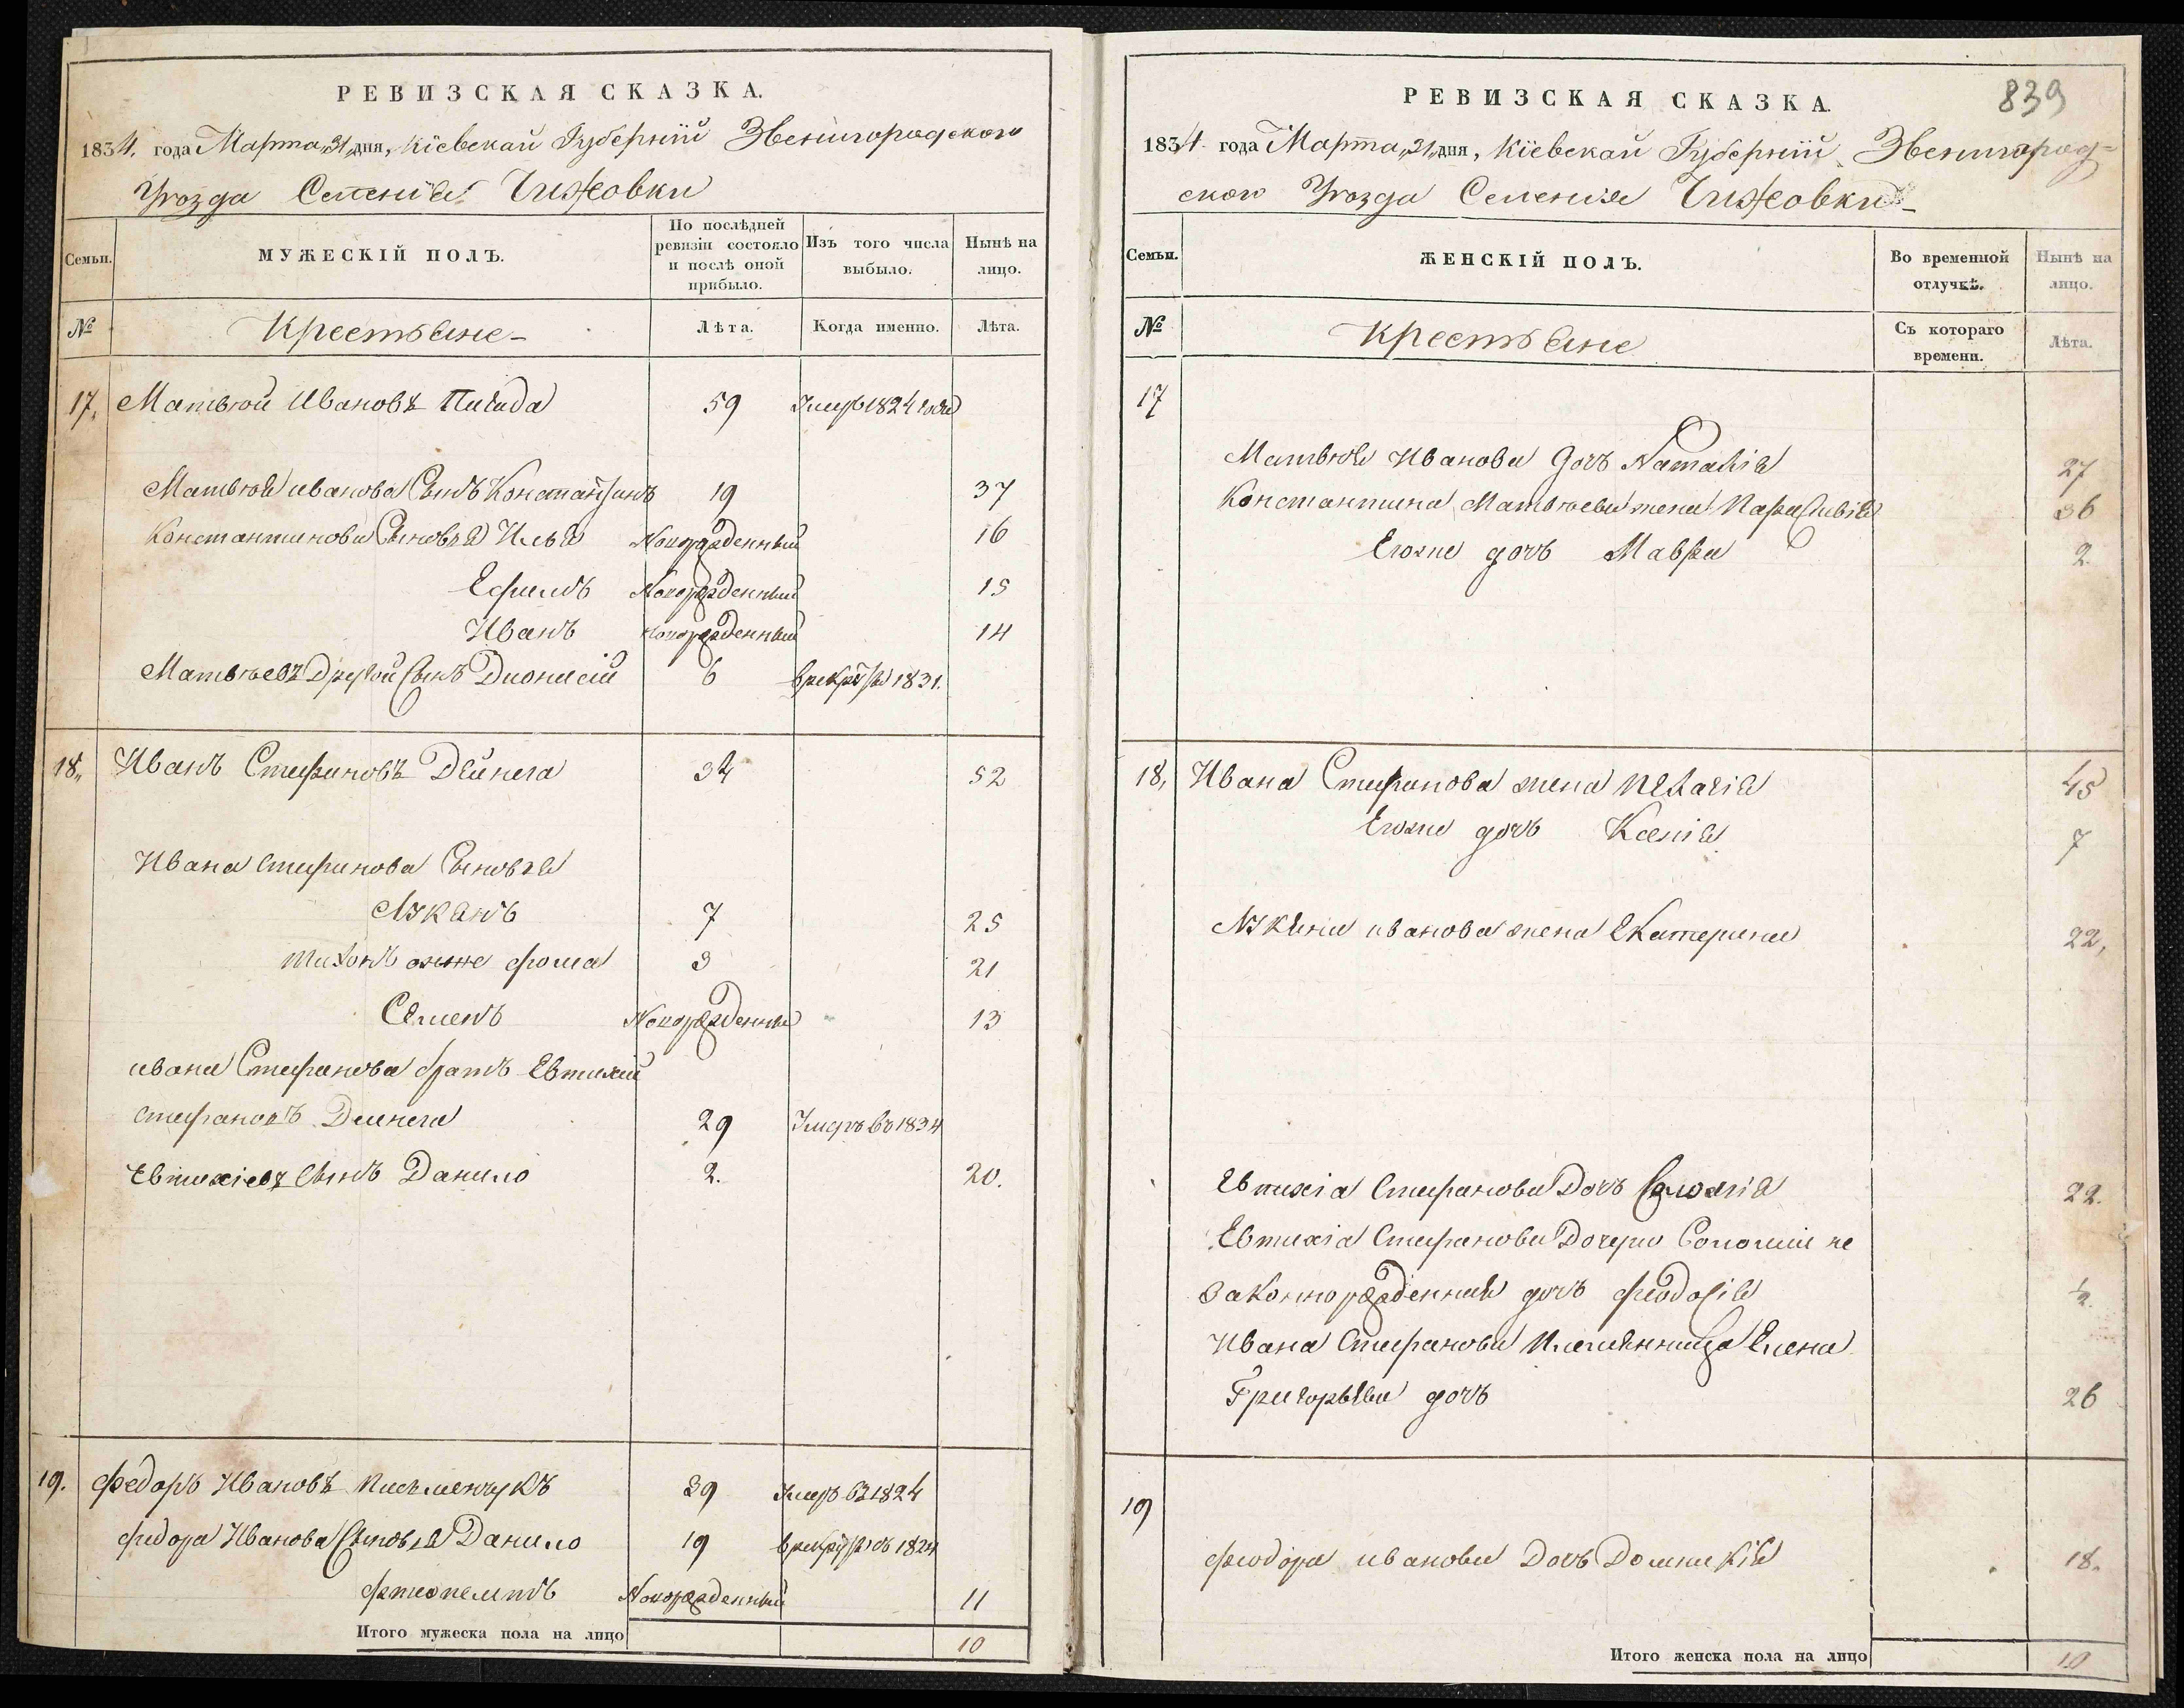 РЕВИЗСКАЯ СКАЗКА.
1834. года Марта 31 дня, Кіевской Губерніи Звенигородского
Уѣзда Селенія Чижовки
Семьи.
МУЖЕСКІЙ ПОЛЪ.
По послѣдней ревизіи состояло и послѣ оной прибыло.
Изъ того числа выбыло.
Нынѣ на лицо.
№
Крестьяне
Лѣта.
Когда именно.
Лѣта.
17. Матвѣй Ивановъ 59 Умеръ 1824 года
Матвѣя иванова Сынъ Константинъ 19 37
Константинова Сыновья Илья Новорожденный 16
Ефимъ Новорожденный 15
Иванъ новорожденный 14
Матвѣевъ Другой Сынъ Дионисій 6 врекруты 1831.
18. Иванъ Стефановъ Дейнега 34 52
Ивана стефанова Сыновья
Лукянъ 7 25
Тихонъ онже фома 3 21
Семенъ Новорожденный 13
ивана Стефанова братъ Евтихій
стефановъ Дейнега 29 Умеръ въ 1834
Евтихіевъ Сынъ Данило 2. 20.
19. Федоръ Ивановъ Письменчукъ 39 Умеръ въ 1824
федора Иванова Сыновья Данило 19 врекруты въ 1824
Новорожденный 11
Итого мужеска пола на лицо 10
839
РЕВИЗСКАЯ СКАЗКА.
1834 года Марта 31 дня, Кіевской Губерніи Звенигород-
ского Уѣзда Селенія Чижовки
Семьи.
ЖЕНСКІЙ ПОЛЪ.
Во временной отлучкѣ.
Нынѣ на лицо.
№
Крестьяне
Съ котораго времени.
Лѣта.
17
Матвѣя Иванова дочь Наталія 27
Константина Матвѣева жена Параскевія 36
Егоже дочь Мавра 2.
18, Ивана Стефанова жена Пелагія 45
Егоже дочь Ксенія 7
Лукяна иванова жена Екатерина 22,
Евтихіа Стефанова Дочь Соломія 22.
Евтихіа Стефанова Дочери Соломіи не
законнорожденная дочь феодосія ½
Ивана Стефанова Племянница Елена
Григорьева дочь 26
19
феодора иванова Дочь Домникія 18.
Итого женска пола на лицо 10